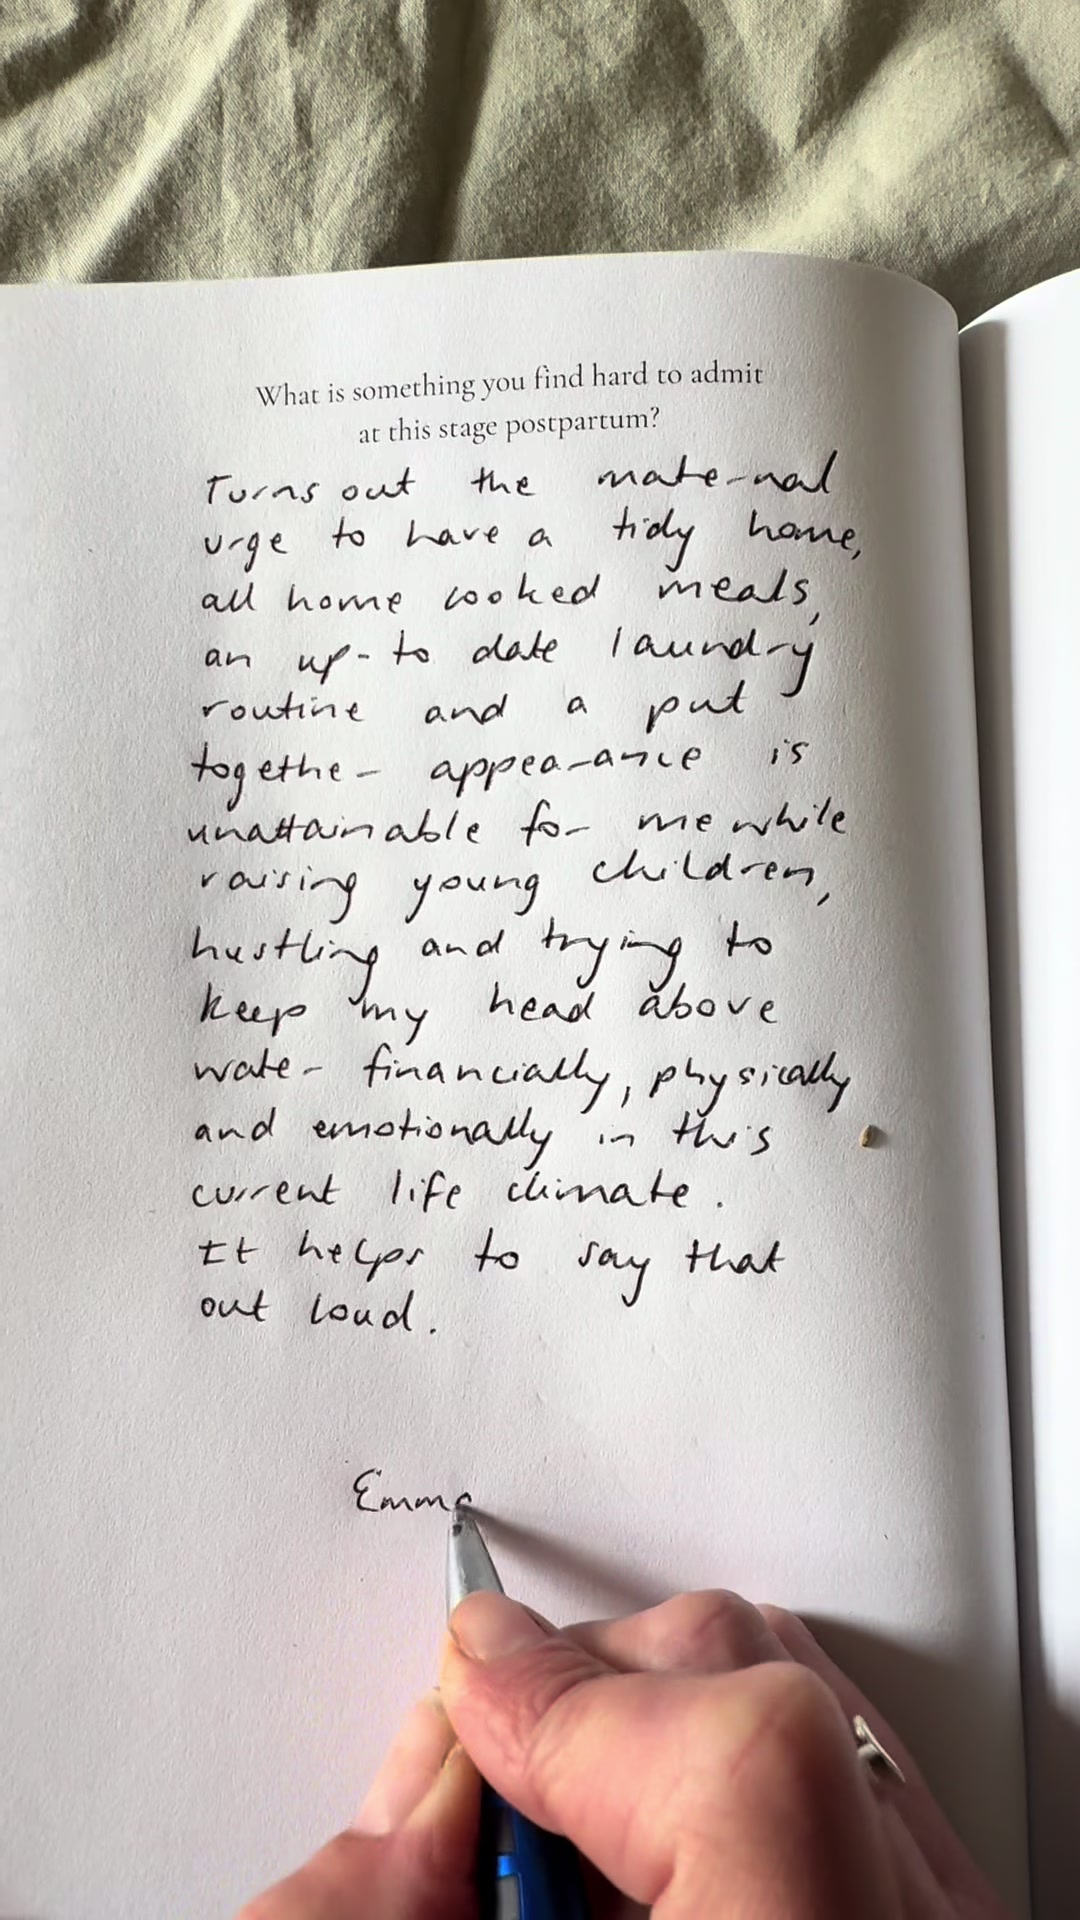 What is something you find hard to admit
at this stage postpartum?
Turns out the maternal
urge to have a tidy home,
all home cooked meals,
an up-to date laundry
routine and a put
together appearance is
unattainable for me while
raising young children,
hustling and trying to
keep my head above
water financially, physically
and emotionally in this
current life climate.
It helps to say that
out loud.
Emma